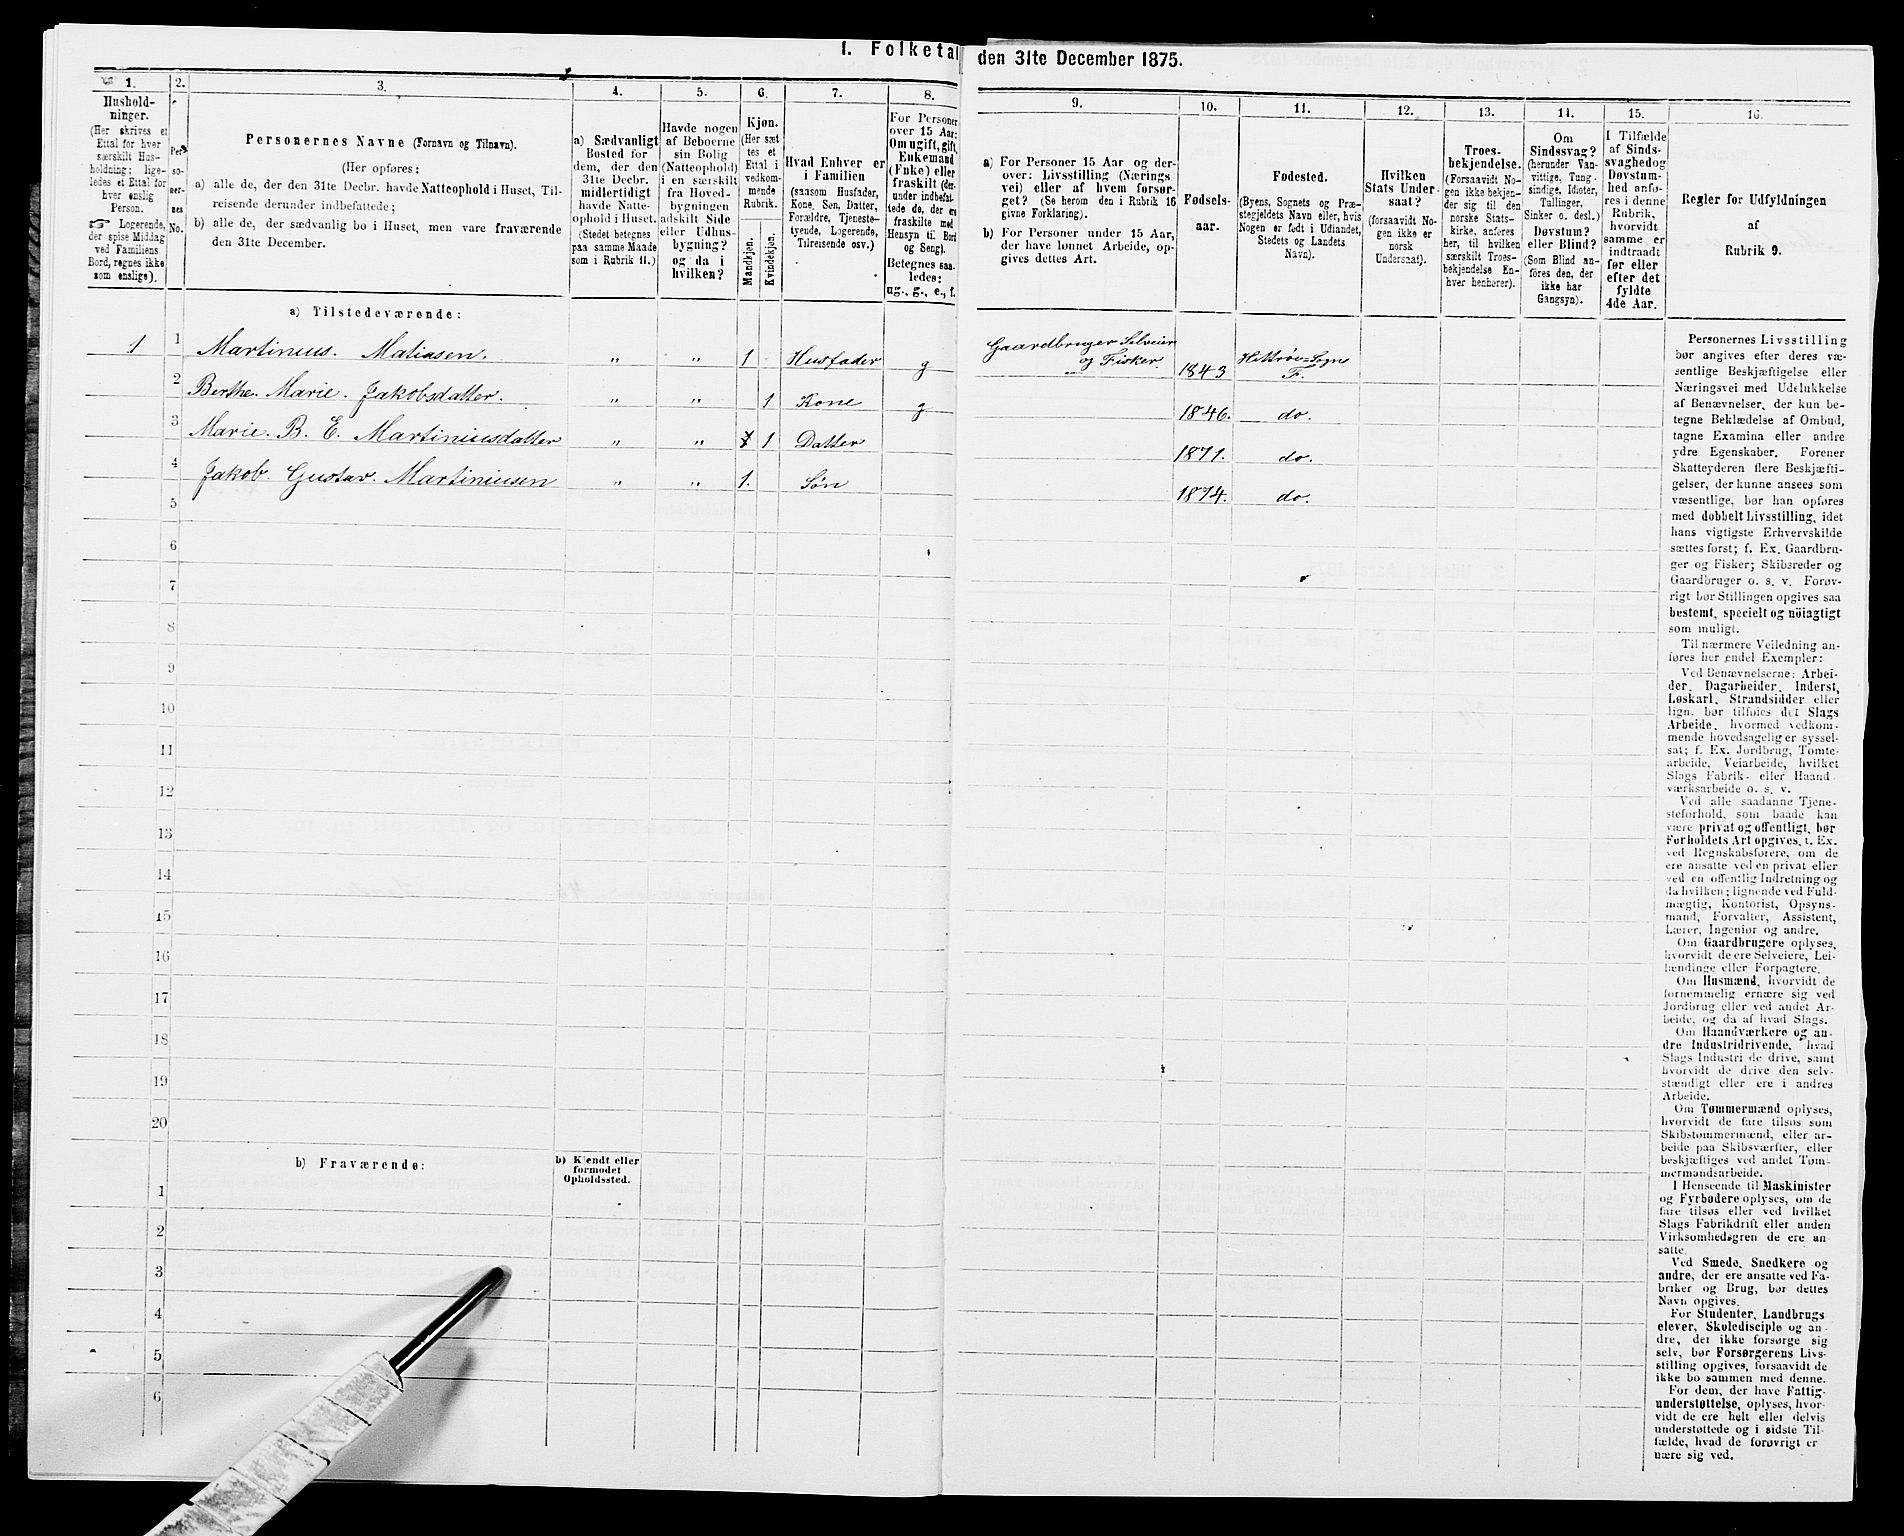 1. Folketal den 31te December 1875.
1.
Hushold-
ninger.
(Her skrives et
Ettal for hver
særskilt Hus-
holdning; lige-
ledes et Ettal for
hver enslig
Person.
☞ Logerende,
der spise Middag
ved Familiens
Bord, regnes ikke
som enslige).
2.
Per-
so-
ner-
nes
No.
3.
Personernes Navne (Fornavn og Tilnavn).
(Her opføres:
a) alle de, der den 31te Decbr. havde Natteophold i Huset, Til-
reisende derunder indbefattede;
b) alle de, der sædvanlig bo i Huset, men vare fraværende
den 31te December.
4.
a) Sædvanligt
Bosted for
dem, der den
31te Decbr.
midlertidigt
havde Natte-
ophold i Huset.
(Stedet betegnes
paa samme Maade
som i Rubrik 11.)
5.
Havde nogen
af Beboerne
sin Bolig
(Natteophold)
i en særskilt
fra Hoved-
bygningen
adskilt Side
eller Udhus-
bygning?
og da i
hvilken?
6.
Kjøn.
(Her sæt-
tes et
Ettal i
vedkom-
mende
Rubrik.
Mandkjøn.
Kvindekjøn.
7.
Hvad Enhver er
i Familien
(saasom Husfader,
Kone, Søn, Datter,
Forældre, Tjeneste-
tyende, Logerende,
Tilreisende osv.)
8.
For Personer
over 15 Aar:
Om ugift, gift,
Enkemand
(Enke) eller
fraskilt (der-
under indbefat-
tede de, der er
fraskilte med
Hensyn til Bord
og Seng).
Betegnes saa-
ledes:
ug., g., e., f.
9.
a) For Personer 15 Aar og der-
over: Livsstilling (Nærings
vei) eller af hvem forsør-
get? (Se herom den i Rubrik 16
givne Forklaring).
b) For Personer under 15 Aar,
der have lønnet Arbeide, op-
gives dettes Art.
10.
Fødsels-
aar.
11.
Fødested.
(Byens, Sognets og Præ-
stegjeldets Navn eller, hvis
Nogen er født i Udlandet,
Stedets og Landets
Navn).
12.
Hvilken
Stats Under-
saat?
(forsaavidt No-
gen ikke er
norsk
Undersaat).
13.
Troes-
bekjendelse.
(Forsaavidt No-
gen ikke bekjen-
der sig til den
norske Stats-
kirke, anføres
her, til hvilken
særskilt Troes-
bekjendelse En-
hver henhører).
14.
Om
Sindssvag?
(herunder Van-
vittige, Tung-
sindige, Idioter,
Tullinger,
Sinker o. desl.)
Døvstum?
eller Blind?
(Som Blind an-
føres den, der
ikke har
Gangsyn).
15.
I Tilfælde
af Sinds-
svaghed og
Døvstum-
hed anfø-
res i denne
Rubrik,
hvorvidt
samme er
indtraadt
før eller
efter det
fyldte
4de Aar.
16.
Regler for Udfyldningen
af
Rubrik 9.
a) Tilstedeværende:
1 1 Martinius. Matiasen. „ „ 1 Husfader g Gaardbruger Selveier og Fisker. 1843 Hittrø-Sogn F.
2 Berthe. Marie. Jakobsdatter. „ „ 1 Kone g 1846. do.
3 Marie. B. E. Martiniusdatter „ „ 1 Datter 1871. do.
4 Jakob Gustav. Martiniusen „ „ 1. Søn 1874. do.
5
6
7
8
9
10
11
12
13
14
15
16
17
18
19
20
b) Fraværende:
b) Kjendt eller
formodet
Opholdssted.
1
2
3
4
5
6
Personernes Livsstilling
bør angives efter deres væ-
sentlige Beskjæftigelse eller
Næringsvei med Udelukkelse
af Benævnelser, der kun be-
tegne Beklædelse af Ombud,
tagne Examina eller andre
ydre Egenskaber. Forener
Skatteyderen flere Beskjæfti-
gelser, der kunne ansees som
væsentlige, bør han opføres
med dobbelt Livsstilling, idet
hans vigtigste Erhvervskilde
sættes først; f. Ex. Gaardbru-
ger og Fisker; Skibsreder og
Gaardbruger o. s. v. Forøv-
rigt bør Stillingen opgives saa
bestemt, specielt og nöiagtigt
som muligt.
Til nærmere Veiledning an-
føres her endel Exempler:
Ved Benævnelserne: Arbei-
der, Dagarbeider, Inderst,
Løskarl, Strandsidder eller
lign. bør tilføies det Slags
Arbeide, hvormed vedkom-
mende hovedsagelig er syssel-
sat; f. Ex. Jordbrug, Tomte-
arbeide, Veiarbeide, hvilket
Slags Fabrik- eller Haand-
værksarbeide o. s. v.
Ved alle saadanne Tjene-
steforhold, som baade kan
være privat og offentligt, bør
Forholdets Art opgives, t. Ex.
ved Regnskabsførere, om de
ere ansatte ved en privat eller
ved en offentlig Indretning og
da hvilken; lignende ved Fuld-
mægtig, Kontorist, Opsyns-
mand, Forvalter, Assistent,
Lærer, Ingeniør og andre.
Om Gaardbrugere oplyses,
hvorvidt de ere Selveiere, Lei-
lændinge eller Forpagtere.
Om Husmænd, hvorvidt de
fornemmelig ernære sig ved
Jordbrug eller ved andet Ar-
beide, og da af hvad Slags.
Om Haandværkere og an-
dre Industridrivende, hvad
Slags Industri de drive, samt
hvorvidt de drive den selv-
stændigt eller ere i andres
Arbeide.
Om Tømmermænd oplyses,
hvorvidt de fare tilsøs som
Skibstømmermænd, eller ar-
beide paa Skibsværfter, eller
beskjæftiges ved andet Tøm-
mermandsarbeide.
I Henseende til Maskinister
og Fyrbødere oplyses, om de
fare tilsøs eller ved hvilket
Slags Fabrikdrift eller anden
Virksomhedsgren de ere an-
satte.
Ved Smede, Snedkere og
andre, der ere ansatte ved Fa-
briker og Brug, bør dettes
Navn opgives.
For Studenter, Landbrugs
elever, Skoledisciple og an-
dre, der ikke forsørge sig
selv, bør Forsørgerens Livs-
stilling opgives, forsaavidt de
ikke bo sammen med denne.
For dem, der have Fattig-
understøttelse, oplyses, hvor-
vidt de ere helt eller delvis
understøttede og i sidste Til-
fælde, hvad de forøvrigt er
nære sig ved.